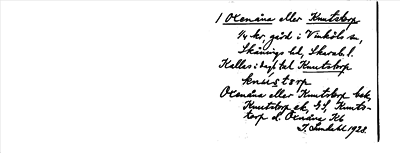 1 Oxenåsa eller Knutstorp
1/4 kr, gård i Vinköls sn,
Skånings hd, Skarab. l.
Kallas i dagl. tal Knutstorp
knustorp
Oxenåsa eller Knutstorp bek,
Knutstorp ek, GS, Knuts-
torp l. Oxnåsa Kb
I. Lindahl 1928.